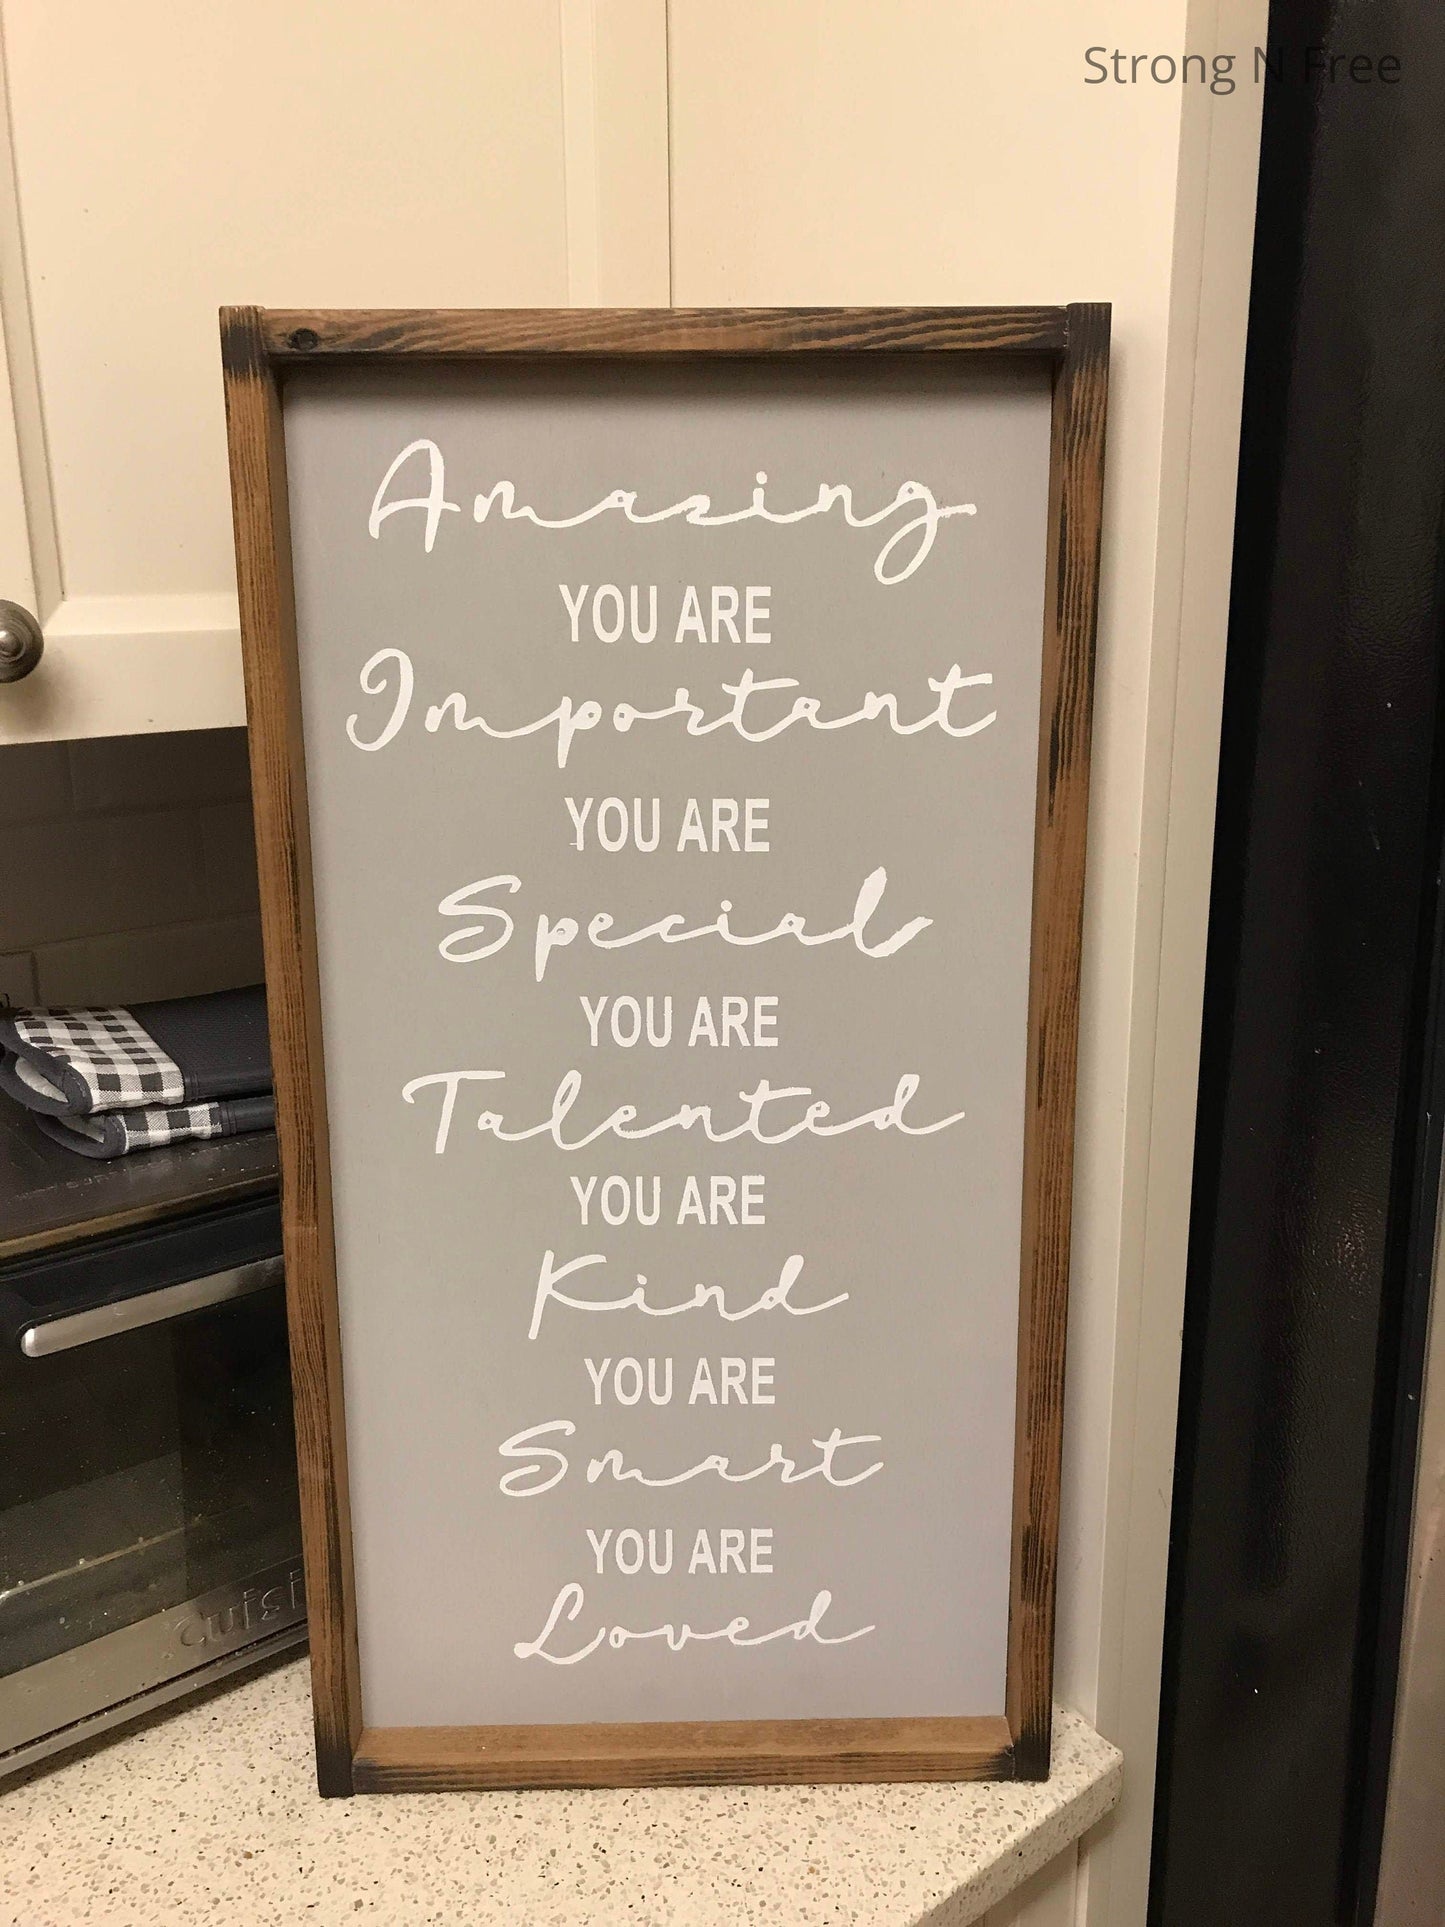 Strong N Free
Amazing
YOU ARE
Important
YOU ARE
Special
YOU ARE
Talented
YOU ARE
Kind
YOU ARE
Smart
YOU ARE
Loved
cuisi